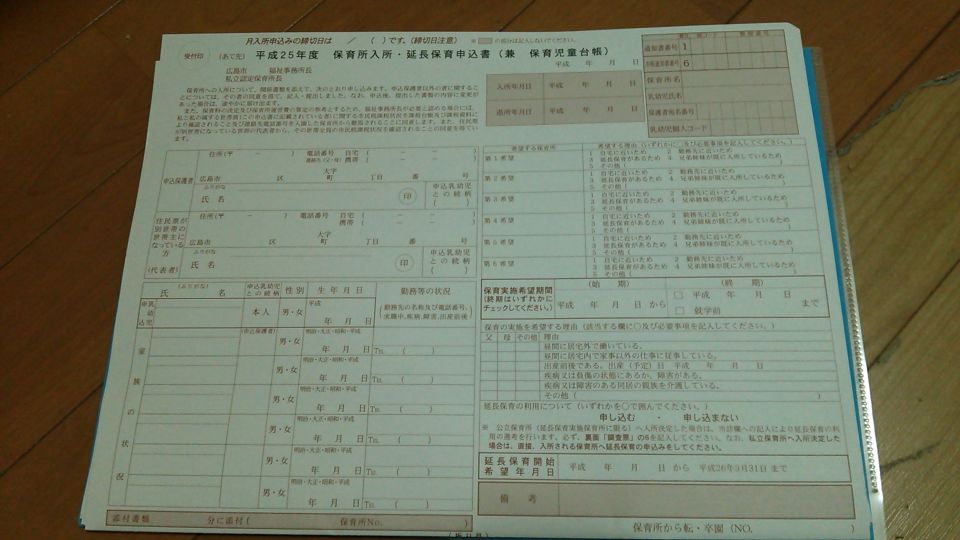 月入所申込みの締切日は　／　（　）です。（締切日注意）
※　の部分は記入しないでください。
受付印
（あて先）
平成25年度　保育所入所・延長保育申込書（兼　保育児童台帳）
平成　年　月　日
広島市　福祉事務所長
私立認定保育所長
保育所への入所について、関係書類を添えて、次のとおり申し込みます。申込保護者以外の者に関するこ
とについては、その者の同意を得て、記入・提出しました。なお、申込後、提出した書類の内容に変更が
あった場合は、速やかに届け出ます。
入所年月日　平成　年　月　日
退所年月日　平成　年　月　日
通知書番号　1
6
保育所名
乳幼児氏名
保護者氏名
乳幼児個人コード
申込保護者
住所（〒　－　）　電話番号　自宅（　－　－　）
携帯（　－　－　）
大字
広島市　区　町　丁目　番　号
ふりがな
氏　名
印
申込乳幼児
との続柄
（　）
住民票が
別世帯の
世帯主に
なっている
方
（代表者）
住所（〒　－　）　電話番号　自宅（　－　－　）
携帯（　－　－　）
大字
広島市　区　町　丁目　番　号
ふりがな
氏　名
印
申込乳幼児
との続柄
（　）
希望する保育所
希望する理由（いずれかに○及び必要事項を記入してください。）
第1希望
1　自宅に近いため　2　勤務先に近いため
3　延長保育があるため　4　兄弟姉妹が既に入所しているため
5　その他（　）
第2希望
1　自宅に近いため　2　勤務先に近いため
3　延長保育があるため　4　兄弟姉妹が既に入所しているため
5　その他（　）
第3希望
1　自宅に近いため　2　勤務先に近いため
3　延長保育があるため　4　兄弟姉妹が既に入所しているため
5　その他（　）
第4希望
1　自宅に近いため　2　勤務先に近いため
3　延長保育があるため　4　兄弟姉妹が既に入所しているため
5　その他（　）
第5希望
1　自宅に近いため　2　勤務先に近いため
3　延長保育があるため　4　兄弟姉妹が既に入所しているため
5　その他（　）
第6希望
1　自宅に近いため　2　勤務先に近いため
3　延長保育があるため　4　兄弟姉妹が既に入所しているため
5　その他（　）
保育実施希望期間
（終期はいずれかに
チェックしてください。）
（始　期）
平成　年　月　日　から
（終　期）
□　平成　年　月　日
□　就学前
まで
（ふりがな）
氏　名
申込乳幼児
との続柄
性別
生　年　月　日
勤務等の状況
申込乳幼児
本人
男・女
平成
年　月　日
（勤務先の名称及び電話番号、
求職中、疾病、障害、出産前後）
家族の状況
（申込保護者）
男・女
明治・大正・昭和・平成
年　月　日
TEL　（　）
男・女
明治・大正・昭和・平成
年　月　日
TEL　（　）
男・女
明治・大正・昭和・平成
年　月　日
TEL　（　）
男・女
明治・大正・昭和・平成
年　月　日
TEL　（　）
男・女
明治・大正・昭和・平成
年　月　日
TEL　（　）
男・女
明治・大正・昭和・平成
年　月　日
TEL　（　）
保育の実施を希望する理由（該当する欄に○及び必要事項を記入してください。）
父　母　その他　理由
昼間に居宅外で働いている。
昼間に居宅内で家事以外の仕事に従事している。
出産前後である。出産（予定）日　平成　年　月　日
疾病又は負傷の状態にあるか、障害がある。
疾病又は障害のある同居の親族を介護している。
その他（　）
延長保育の利用について（いずれかを○で囲んでください。）
申し込む　・　申し込まない
※　公立保育所（延長保育実施保育所に限る）へ入所決定した場合は、当該欄への記入により延長保育の利
用の選考を行います。必ず、裏面「調査票」の6を記入してください。なお、私立保育所へ入所決定した
場合は、直接、入所される保育所へ延長保育の申込みをしてください。
延長保育開始
希望年月日
平成　年　月　日　から　平成26年3月31日　まで
備　考
添付書類　分に添付（　保育所No.　）
保育所から転・卒園（NO.　）